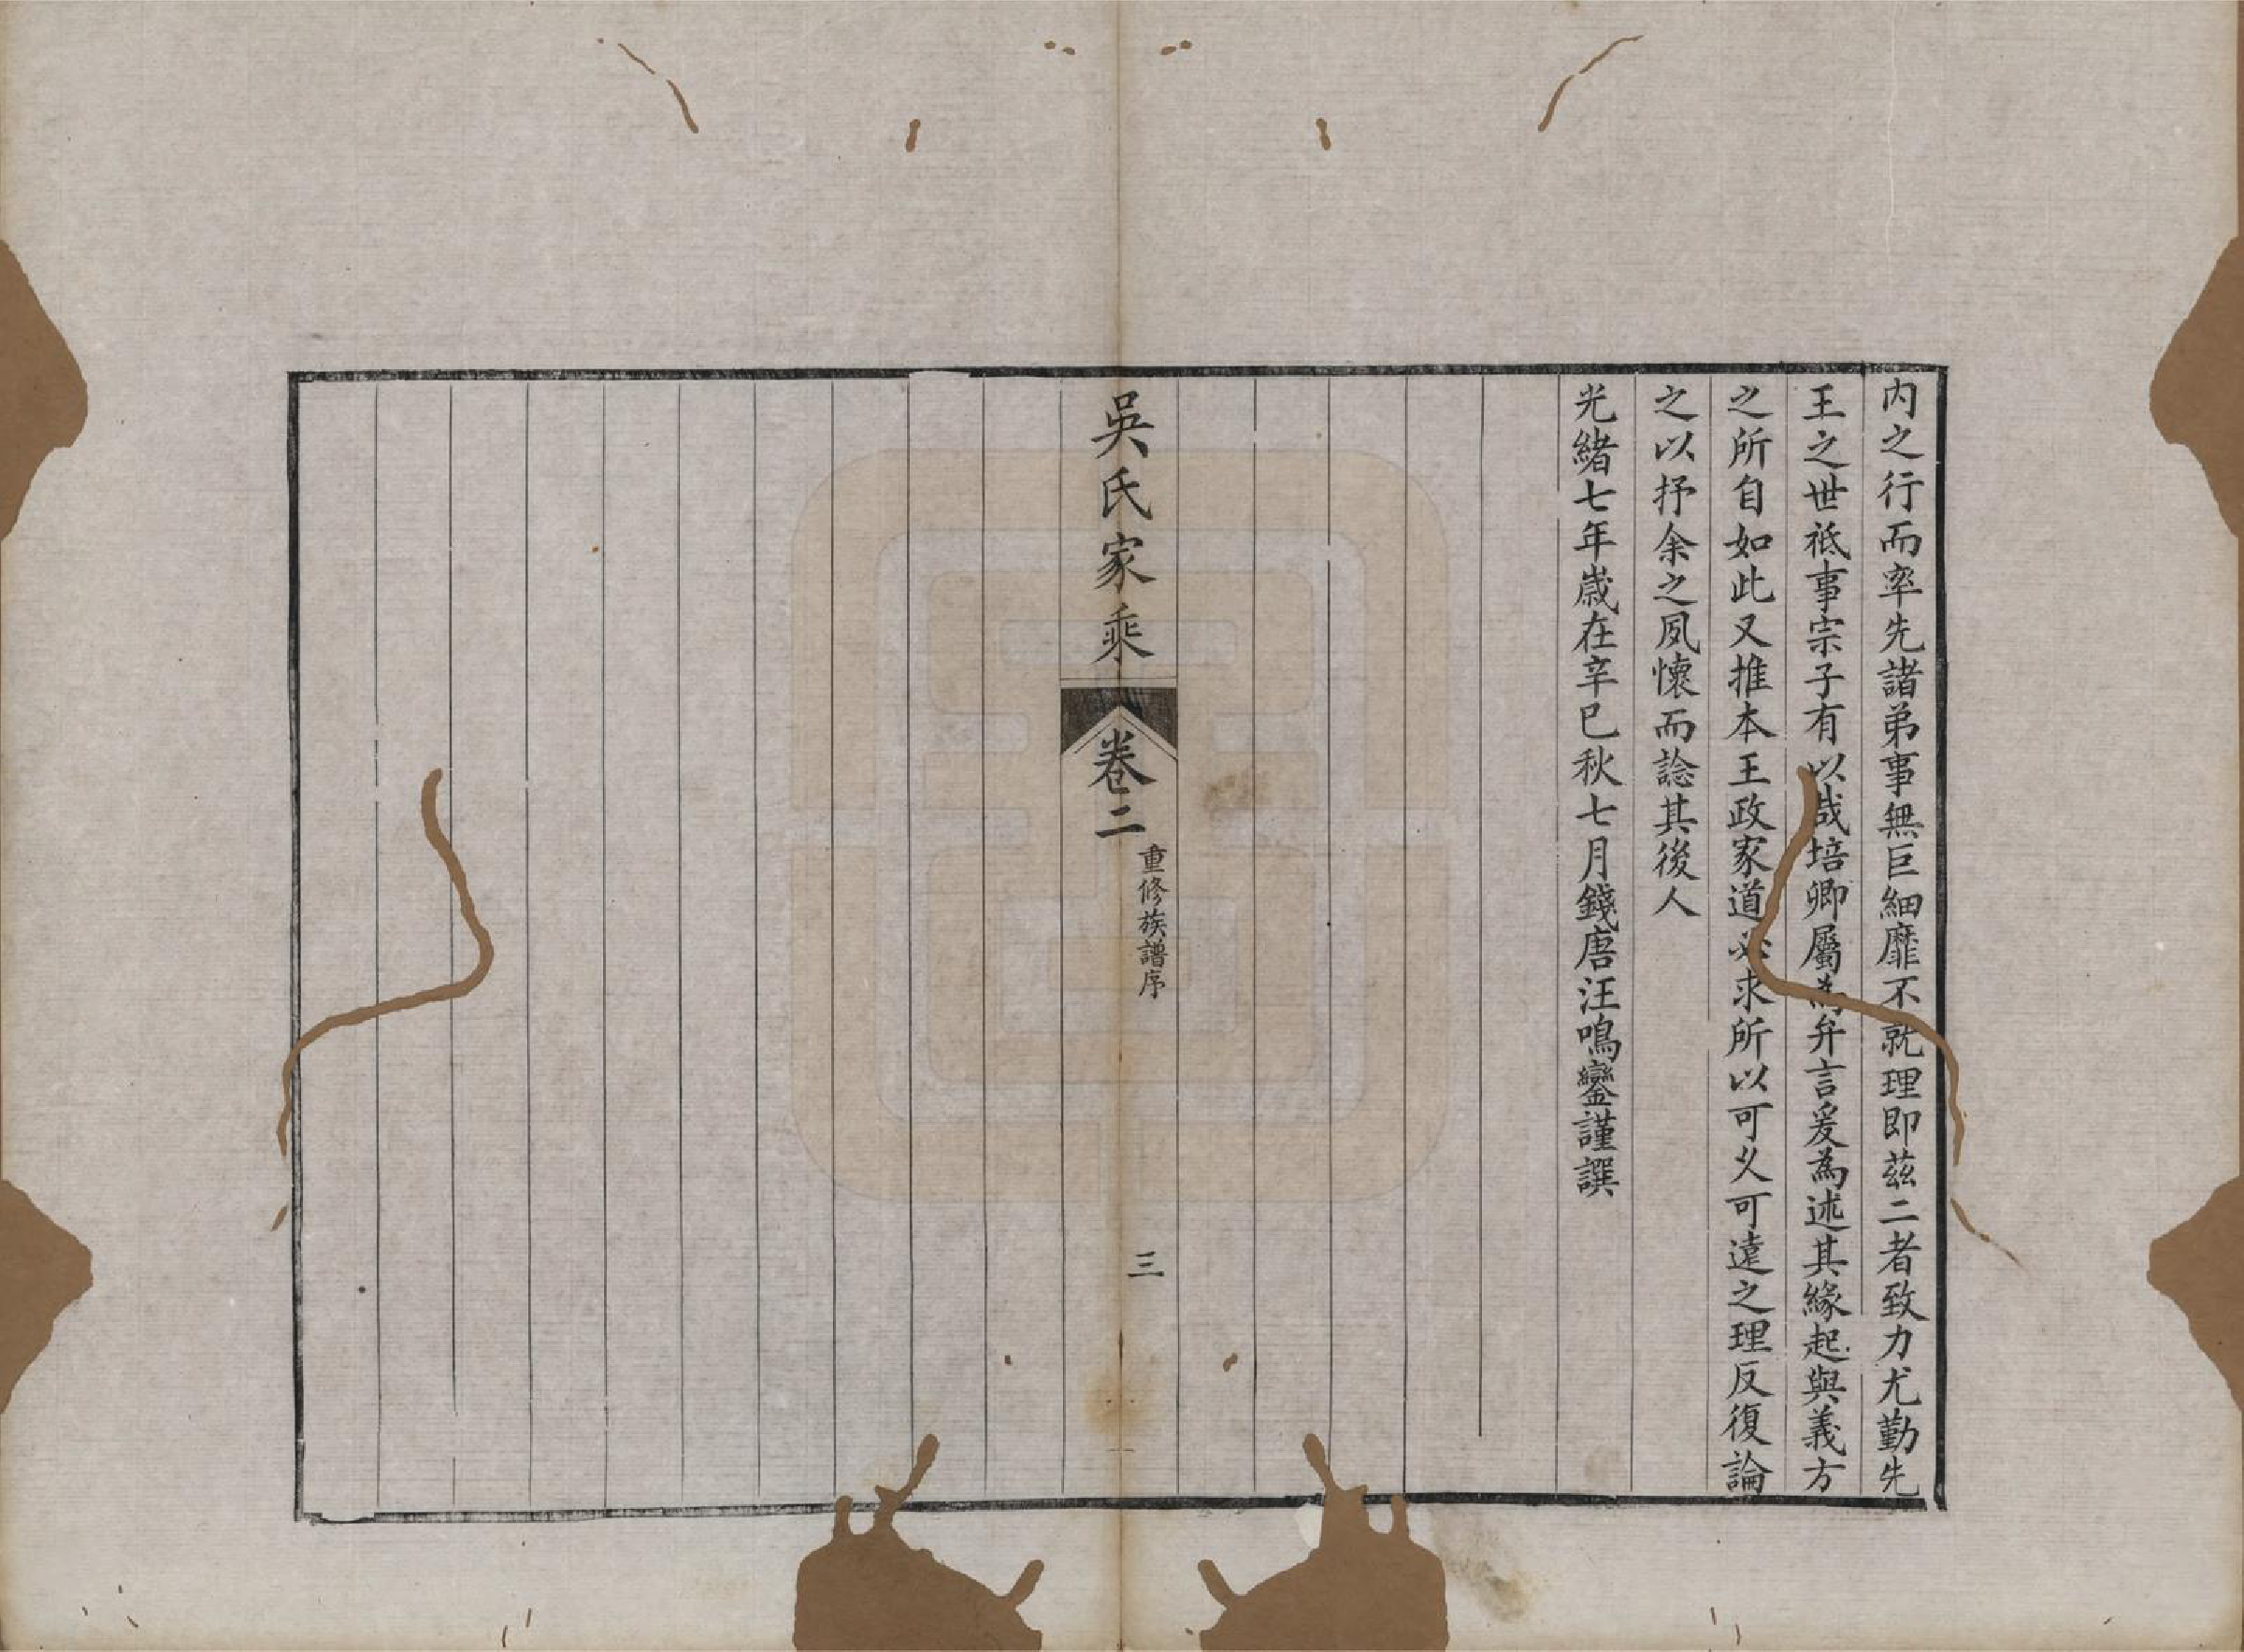 內之行而率先諸弟事無巨細靡不就理即茲二者致力尤勤先
王之世祇事宗子有以哉培卿屬為弁言爰為述其緣起與義方
之所自如此又推本王政家道必求所以可久可遠之理反復論
之以抒余之夙懷而諗其後人
光緒七年歲在辛巳秋七月錢唐汪鳴鑾謹譔
吳氏家乘
卷二
重修族譜序
三